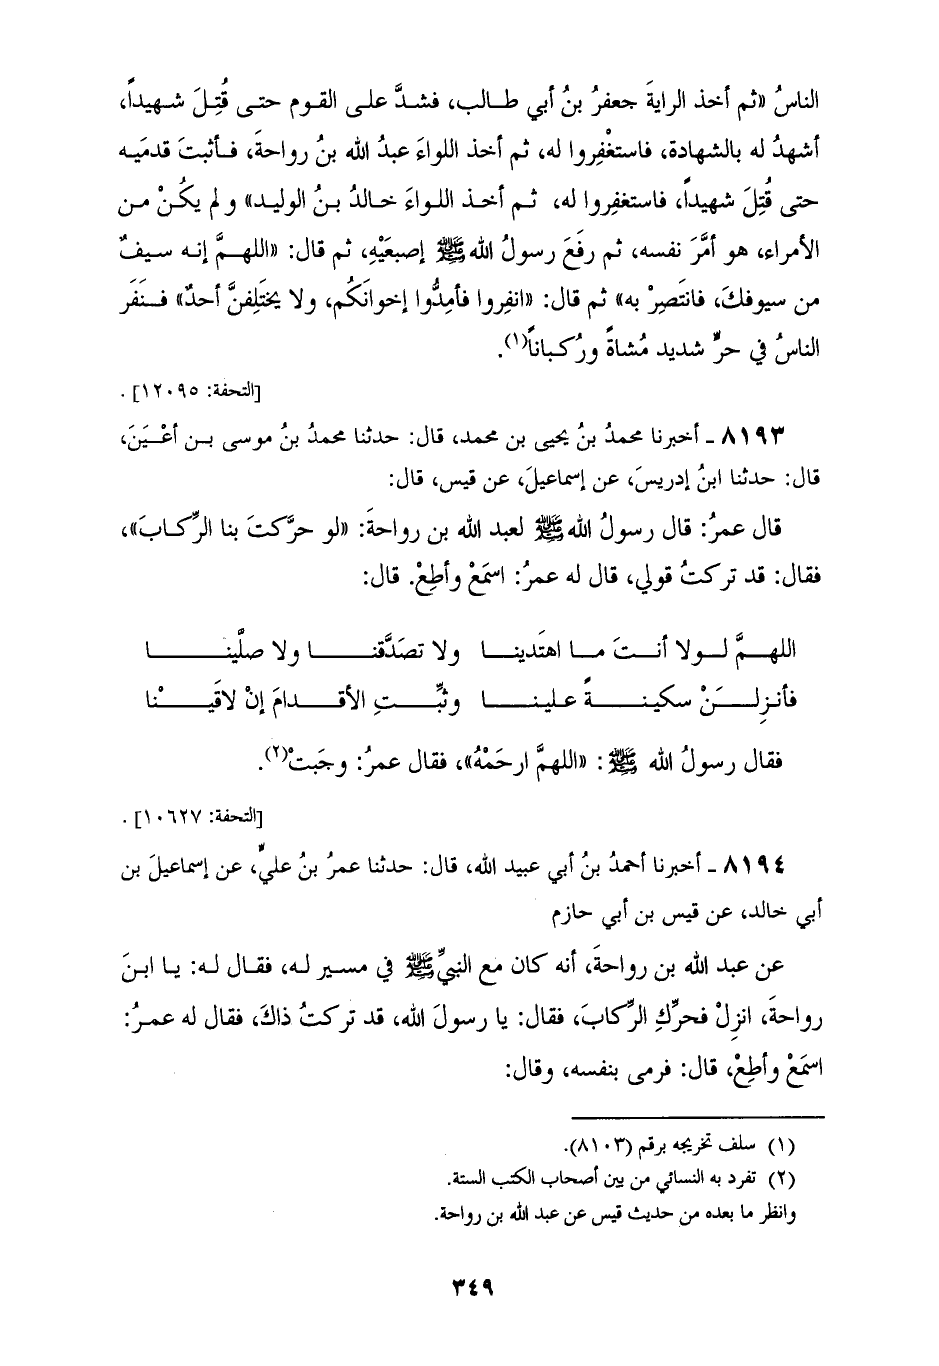 الناسُ «ثم أخذ الرايةَ جعفرُ بنُ أبي طالب، فشدَّ على القوم حتى قُتِلَ شهيداً،
أشهدُ له بالشهادة، فاستغْفِروا له، ثم أخذ اللواءَ عبدُ الله بنُ رواحةَ، فأثبتَ قدمَيه
حتى قُتِلَ شهيداً، فاستغفِروا له، ثم أخذ اللواءَ خالدُ بنُ الوليد» ولم يكُنْ من
الأمراء، هو أمَّرَ نفسه، ثم رفَعَ رسولُ الله ﷺ إصبعَيْهِ، ثم قال: «اللهمَّ إنه سيفٌ
من سيوفكَ، فانتَصِرْ به» ثم قال: «انفِروا فأمِدُّوا إخوانَكُم، ولا يختَلِفنَّ أحدٌ» فنَفَر
الناسُ في حرٍّ شديد مُشاةً ورُكباناً(١).
[التحفة: ١٢٠٩٥].
٨١٩٣ ـ أخبرنا محمدُ بنُ يحيى بن محمد، قال: حدثنا محمدُ بنُ موسى بن أعْيَنَ،
قال: حدثنا ابنُ إدريسَ، عن إسماعيلَ، عن قيس، قال:
قال عمرُ: قال رسولُ الله ﷺ لعبد الله بن رواحةَ: «لو حرَّكتَ بنا الرِّكابَ»،
فقال: قد تركتُ قولي، قال له عمرُ: اسمَعْ وأطِعْ. قال:
اللهمَّ لولا أنتَ ما اهتَدينا ولا تصَدَّقنا ولا صلَّينا
فأنزِلَنْ سكينةً علينا وثبِّتِ الأقدامَ إنْ لاقَيْنا
فقال رسولُ الله ﷺ: «اللهمَّ ارحَمْهُ»، فقال عمرُ: وجَبتْ(٢).
[التحفة: ١٠٦٢٧].
٨١٩٤ ـ أخبرنا أحمدُ بنُ أبي عبيد الله، قال: حدثنا عمرُ بنُ عليٍّ، عن إسماعيلَ بن
أبي خالد، عن قيس بن أبي حازم
عن عبد الله بن رواحةَ، أنه كان مع النبيِّ ﷺ في مسير له، فقال له: يا ابنَ
رواحةَ، انزِلْ فحرِّكِ الرِّكابَ، فقال: يا رسولَ الله، قد تركتُ ذاكَ، فقال له عمرُ:
اسمَعْ وأطِعْ، قال: فرمى بنفسه، وقال:
(١) سلف تخريجه برقم (٨١٠٣).
(٢) تفرد به النسائي من بين أصحاب الكتب الستة.
وانظر ما بعده من حديث قيس عن عبد الله بن رواحة.
٣٤٩